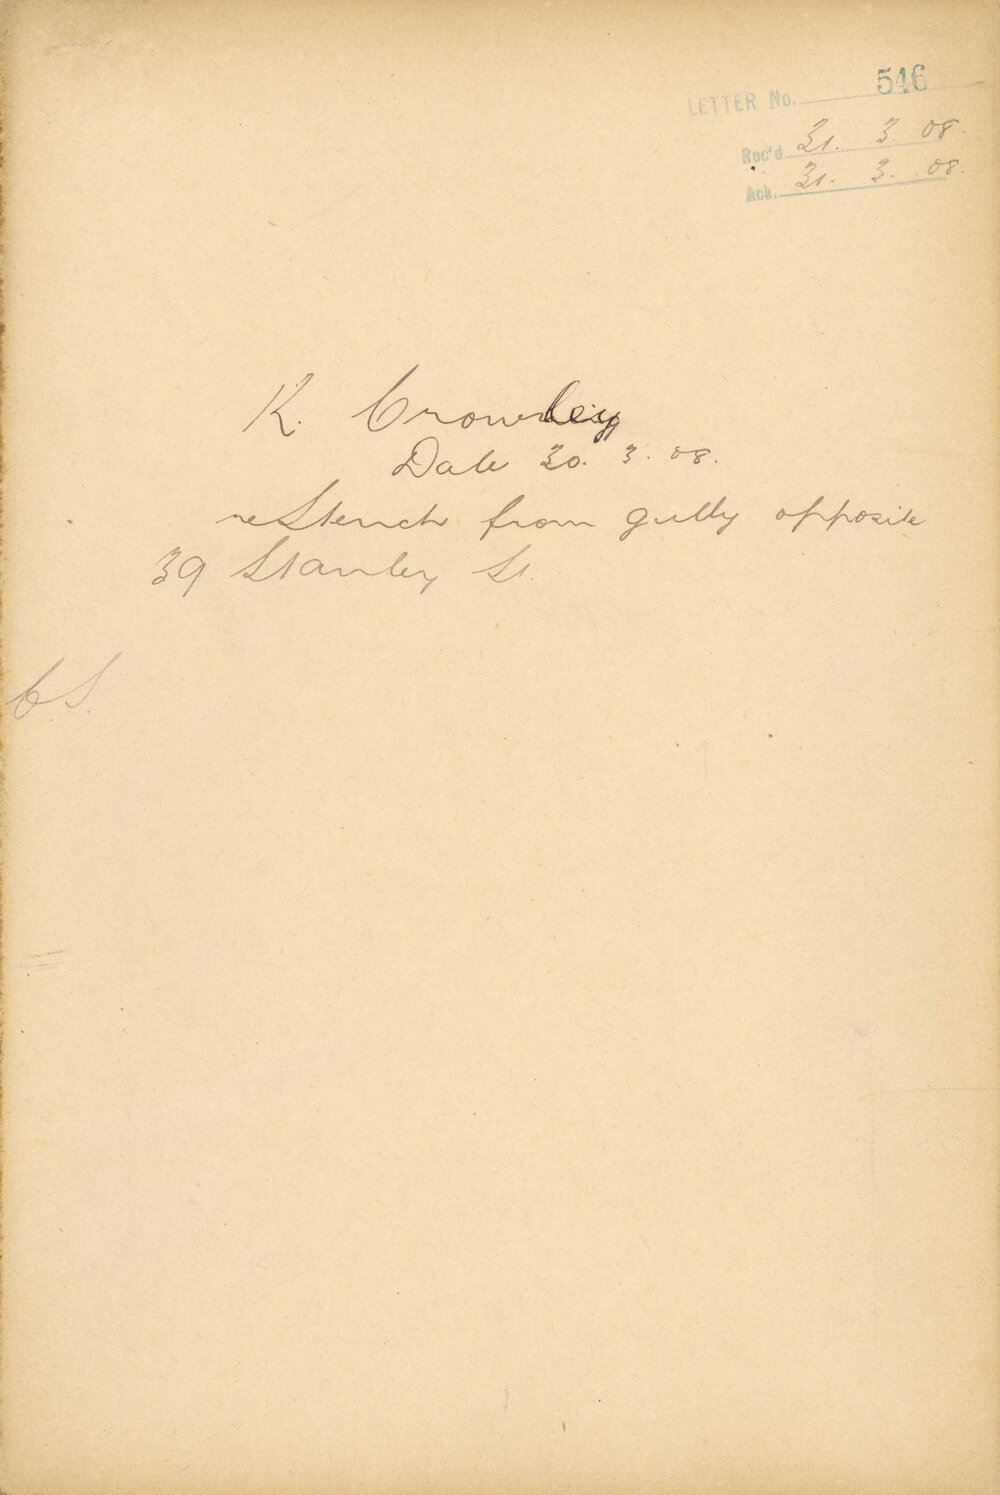 LETTER No. 546
Rec'd 31. 3. 08.
Ack. 31. 3. 08.
K. Crowley
Date 30. 3. 08.
re Stench from gully opposite
39 Stanley St.
C S.